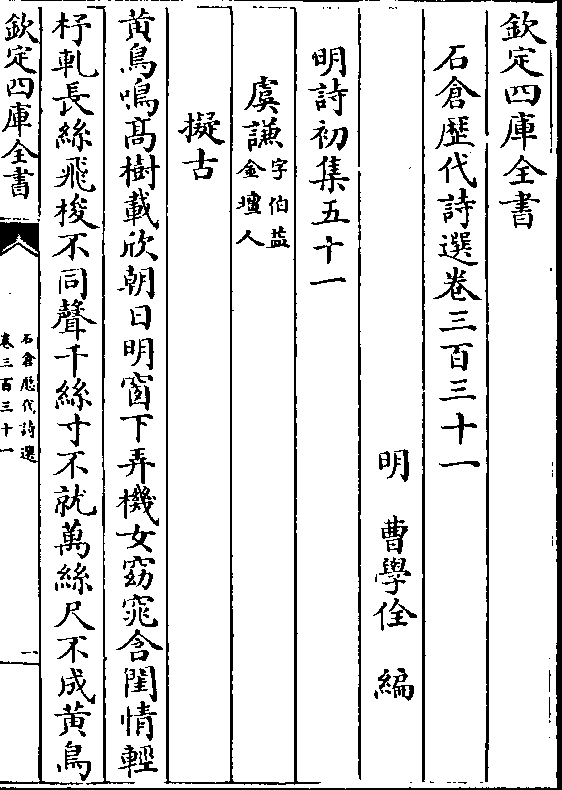 欽定四庫全書
石倉歴代詩選卷三百三十一
明 曹學佺 編
明詩初集五十一
虞謙字伯益
金壇人
擬古
黄鳥鳴髙樹載欣朝日明窗下弄機女窈窕含閨情輕
杼軋長絲飛梭不同聲千絲寸不就萬絲尺不成黄鳥
欽定四庫全書
石倉歴代詩選
卷三百三十一
一